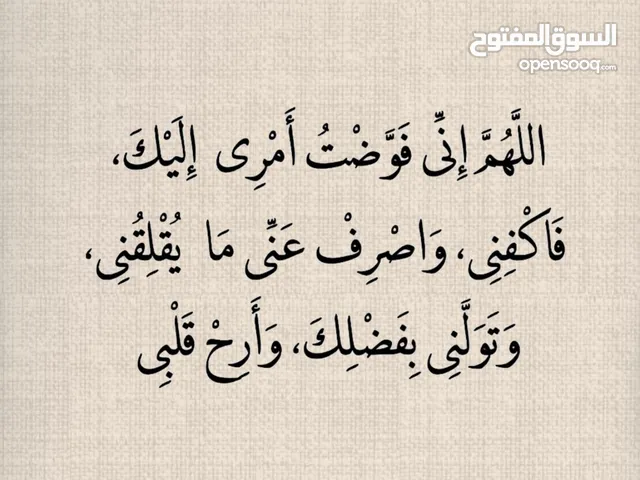 السوق المفتوح
opensooq.com
اللَّهُمَّ إِنِّى فَوَّضْتُ أَمْرِى إِلَيْكَ،
فَاكْفِنِى، وَاصْرِفْ عَنِّى مَا يُقْلِقُنِى،
وَتَوَلَّنِى بِفَضْلِكَ، وَأَرِحْ قَلْبِى